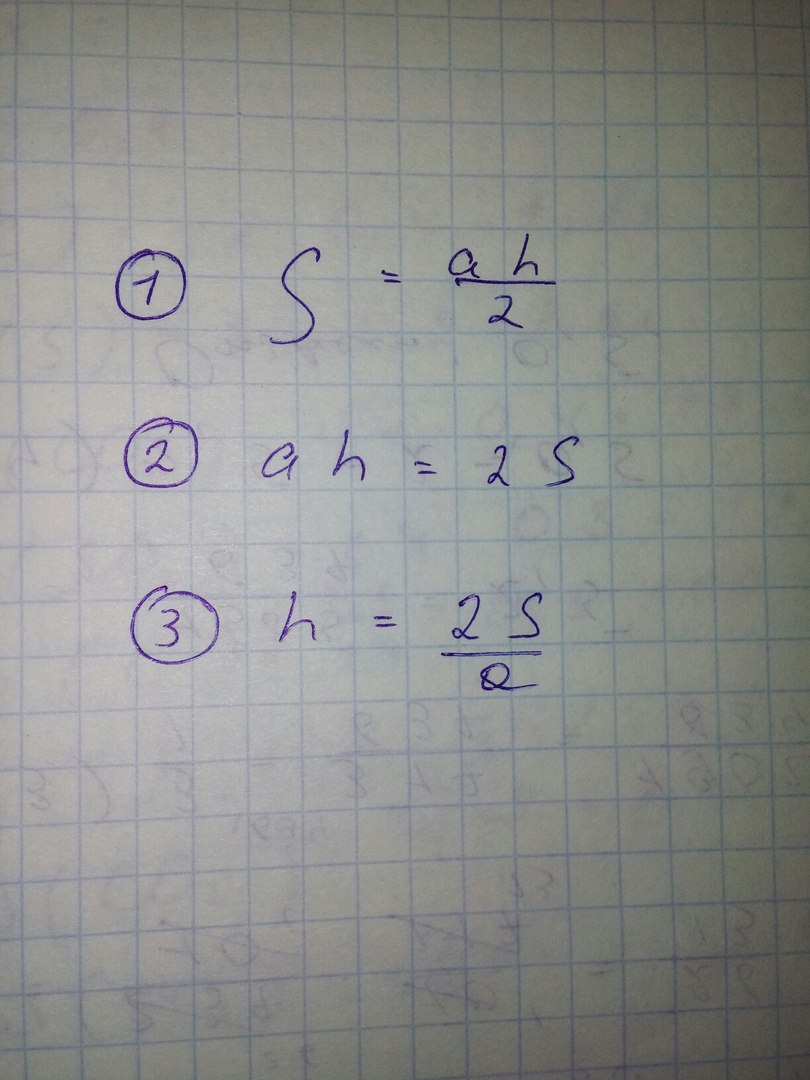 ① S = ah/2
② ah = 2S
③ h = 2S/a